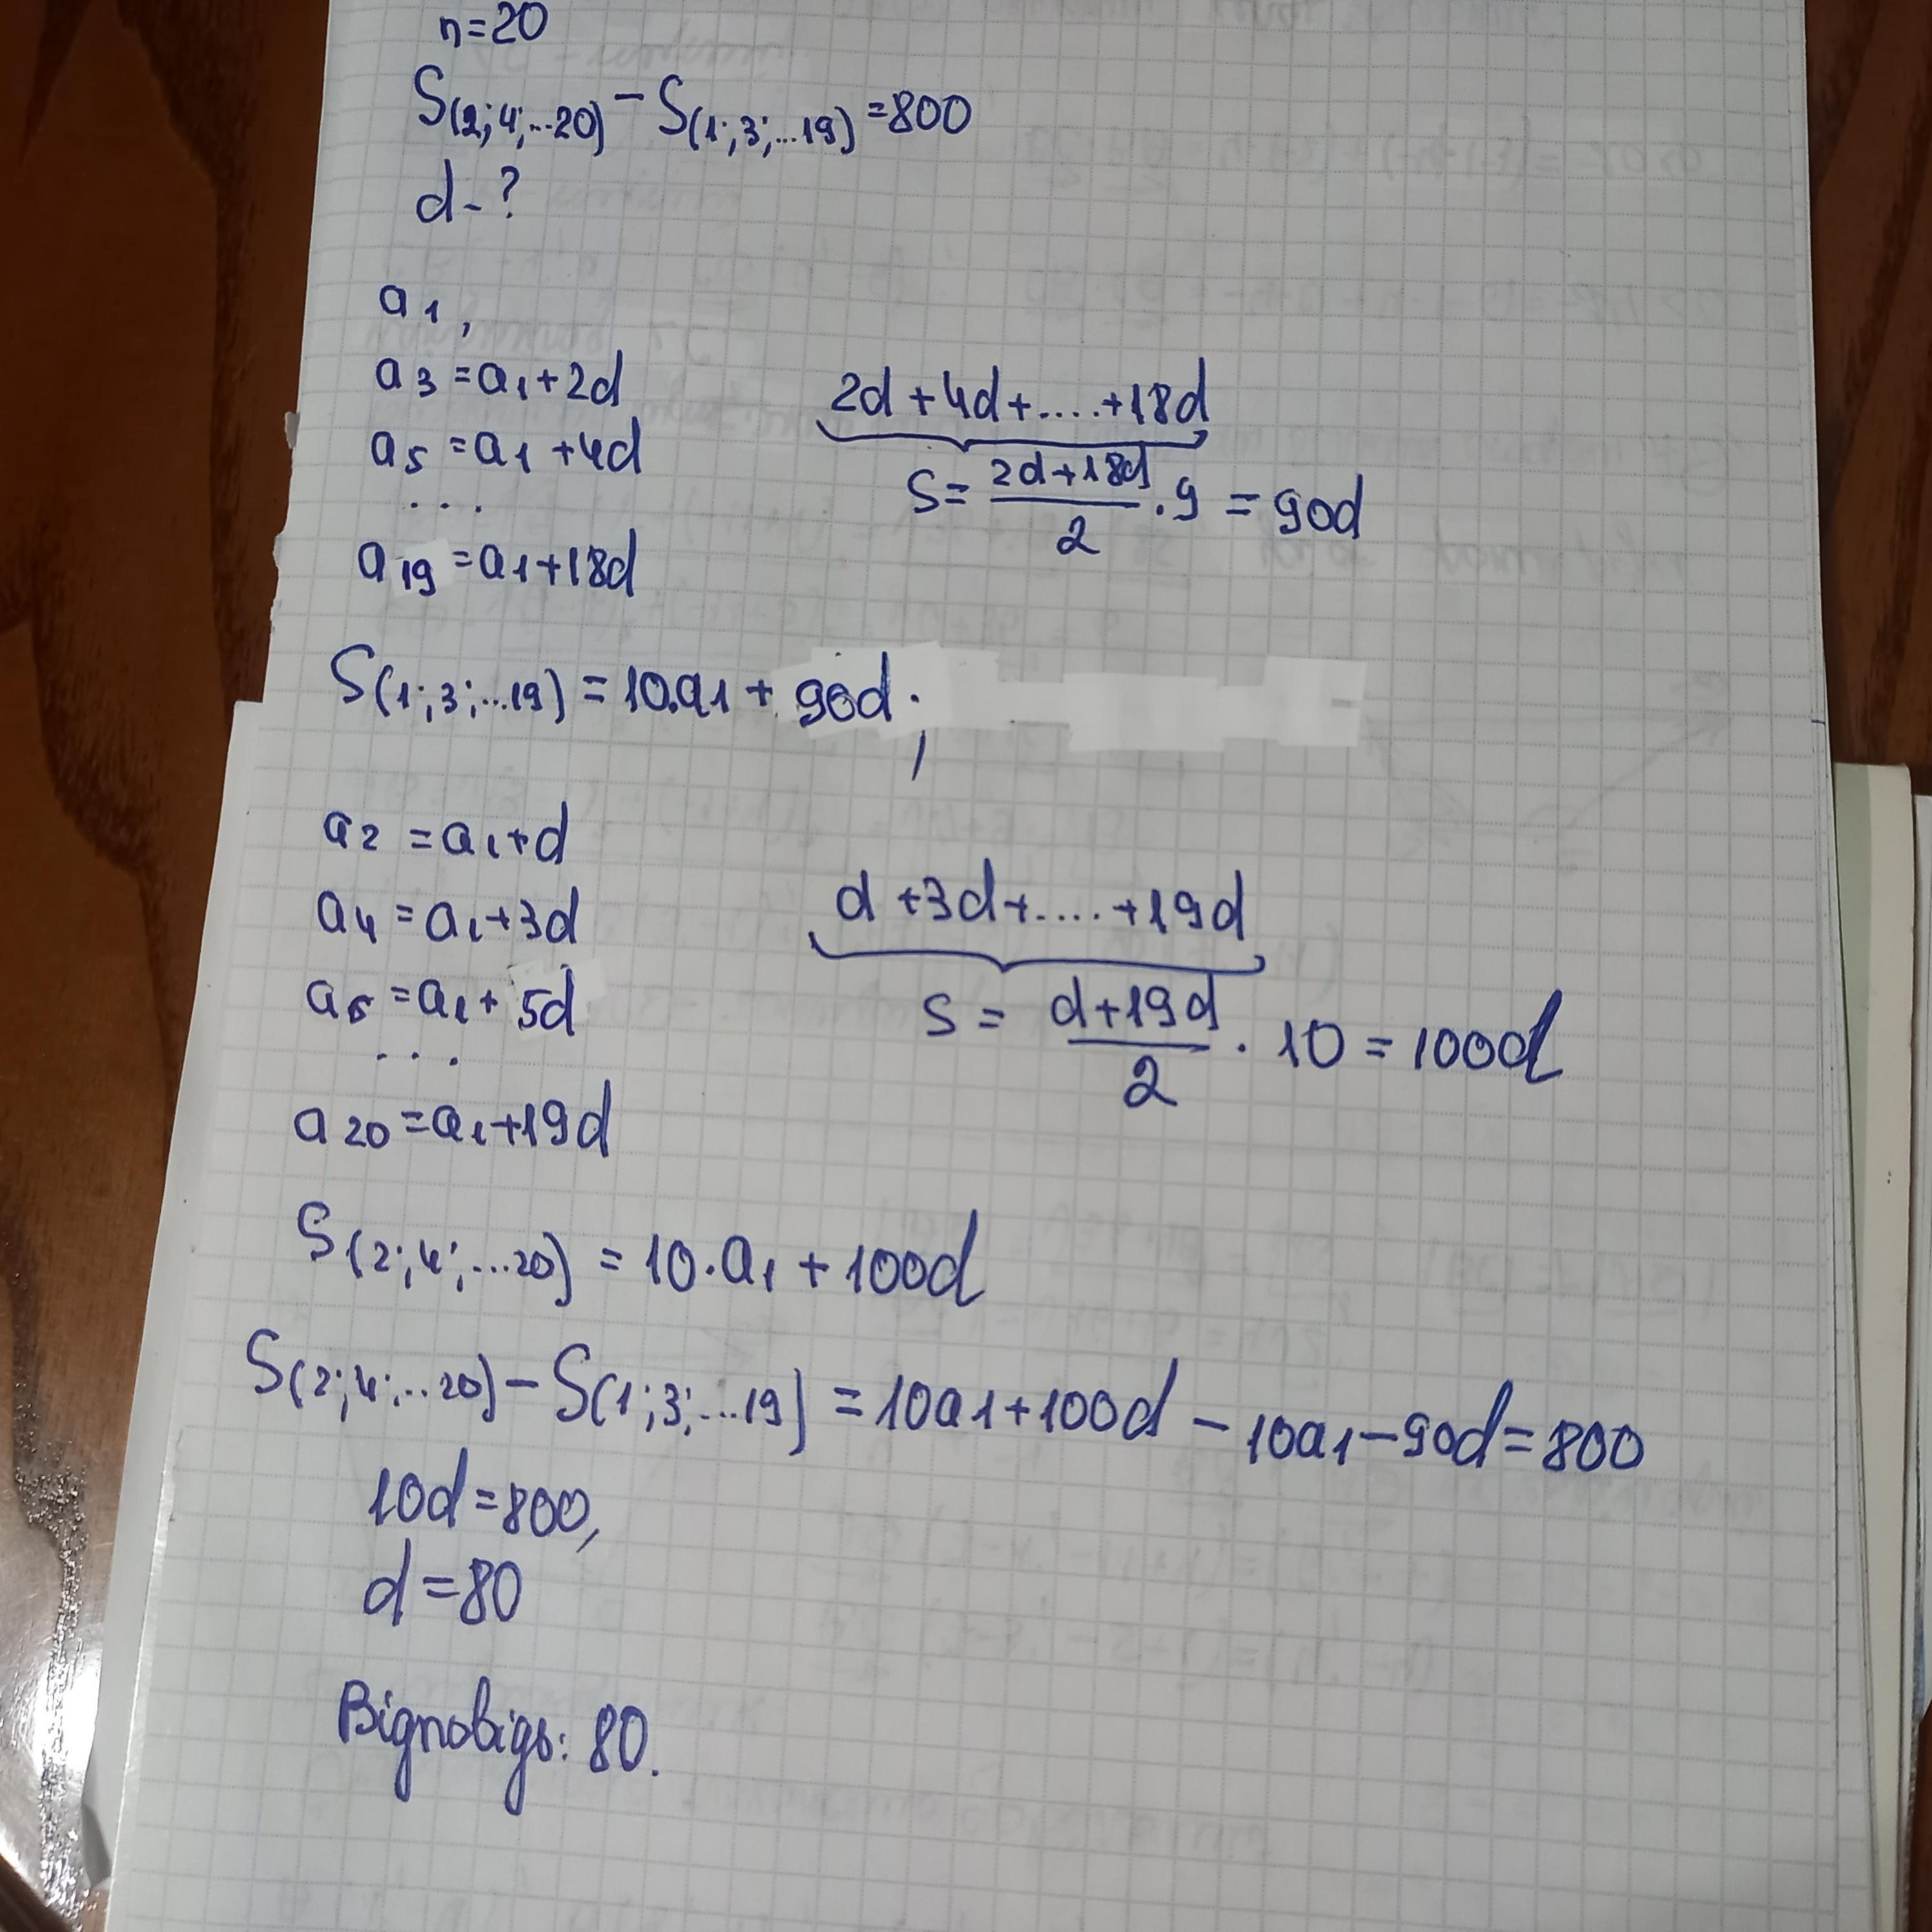 n=20
S(2;4;...20) - S(1;3;...19) = 800
d-?
a1,
a3 = a1+2d
a5 = a1+4d
...
a19 = a1+18d
2d+4d+....+18d
S = (2d+18d)/2 · 9 = 90d
S(1;3;...19) = 10·a1 + 90d;
a2 = a1+d
a4 = a1+3d
a6 = a1+5d
...
a20 = a1+19d
d+3d+....+19d
S = (d+19d)/2 · 10 = 100d
S(2;4;...20) = 10·a1 + 100d
S(2;4;...20) - S(1;3;...19) = 10a1+100d - 10a1-90d = 800
10d=800,
d=80
Відповідь: 80.